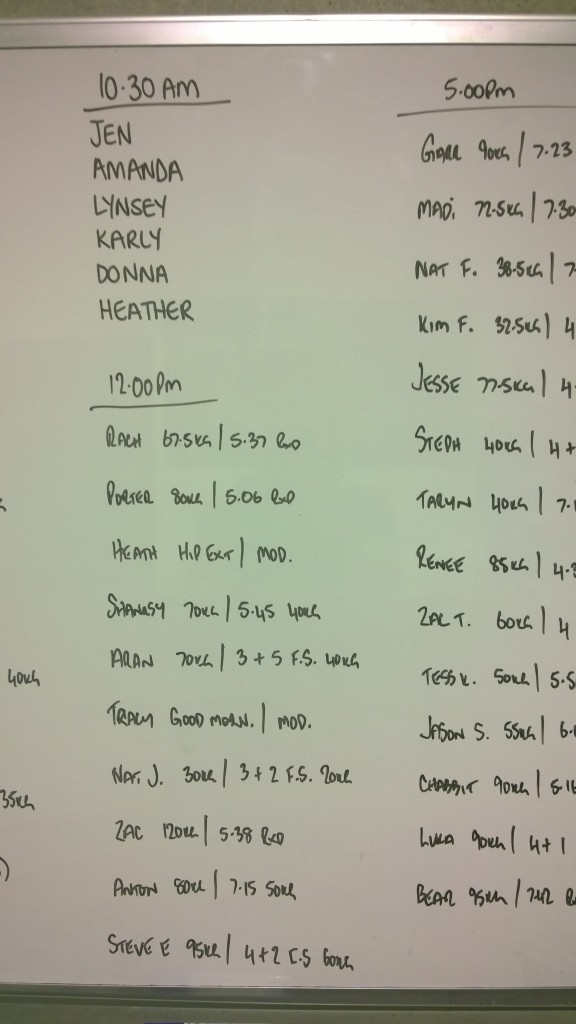 10.30 AM
JEN
AMANDA
LYNSEY
KARLY
DONNA
HEATHER
12.00 Pm
RACH 67.5KG | 5.37 RXD
PORTER 80KG | 5.06 RXD
HEATH HIP EXT | MOD.
70KG | 5.45 40KG
ARAN 70KG | 3 + 5 F.S. 40KG
TRACY GOOD MORN. | MOD.
NAT. J. 30KG | 3 + 2 F.S. 20KG
ZAC 120KG | 5.38 RXD
ANTON 80KG | 7.15 50KG
STEVE E 95KG | 4+2 F.S 60KG
40KG
35KG
)
5.00Pm
90KG | 7.23
MADI 72.5KG | 7.30
NAT F. 38.5KG | 7
KIM F. 32.5KG | 4
JESSE 77.5KG | 4
STEPH 40KG | 4 +
TARYN 40KG | 7.1
RENEE 85KG | 4.3
ZAC T. 60KG | 4
TESS K. 50KG | 5.5
JASON S. 55KG | 6.
90KG | 5.16
LUKA 90KG | 4+1
BEAR 95KG | 7.42 R